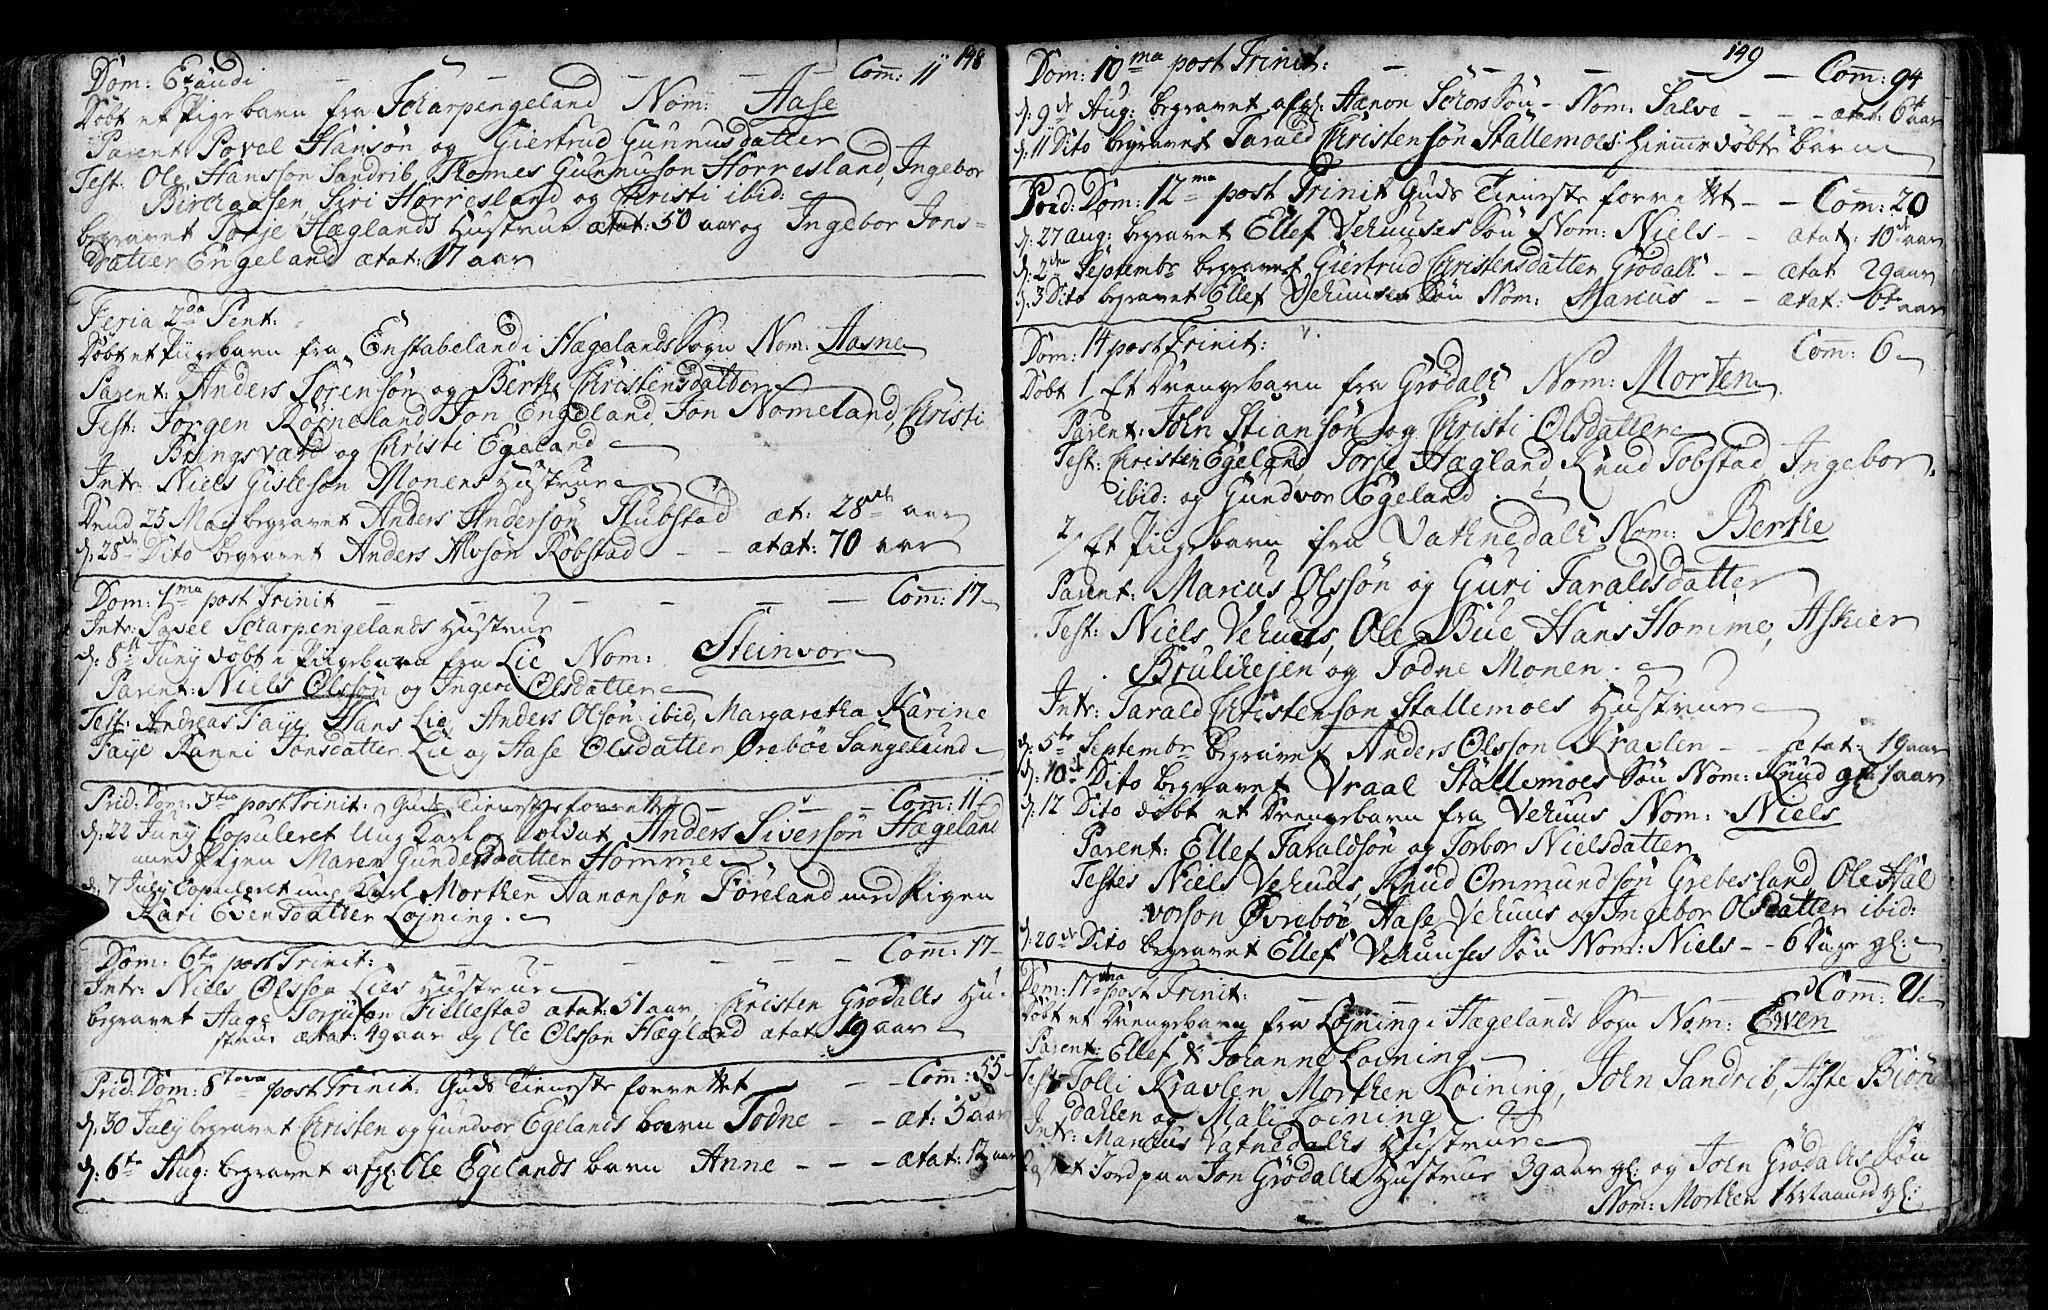 148
Dom: Exaudi - - - - - Com: 11
Døbt et Pigebarn fra Scharpengeland Nom: Aase
Parent: Povel Hansøn og Giertrud Gunnusdatter
Test: Ole Hansson Sandrib, Thomes Gunnuson Horresland, Ingebor
Birchaasen, Siri Horresland og Christi ibid:
begravet Torje Hæglands Hustrue ætat: 50 aar og Ingebor Jons-
datter Engeland ætat: 17 aar
Feria 2da Pent:
Døbt et Pigebarn fra Enstabeland i Hægelands Sogn Nom: Aasne
Parent: Anders Sørensøn og Berthe Christensdatter
Test: Jørgen Røineland, Jon Engeland, Jon Nomeland, Christi
Bringsværd og Christi Egeland
Intr: Niels Gislesøn Monens Hustrue
Dend 25 Maj begravet Anders Andersøn Stubstad æt: 28 aar
d: 28de Dito begravet Anders Alvsøn Robstad - - ætat: 70 aar
Dom: 1ma post Trinit - - - - - Com: 17
Intr: Pavel Scharpengelands Hustrue
d: 8de Juny døbt i Pigebarn fra Lie Nom: Steinvor
Parent: Niels Olssøn og Ingeri Olsdatter
Test: Andreas Faye, Hans Lie, Anders Olsøn ibid, Margaretha Karine
Faye Ranni Jonsdatter Lie og Aase Olsdatter Øvrebøe Sangelund
Prid: Dom: 3tia post Trinit: Guds Tieneste forrettet - - - Com: 11
d: 22 Juny Copuleret Ung Karl og Soldat Anders Siversøn Hægeland
med Pigen Maren Gundersdatter Homme
d: 7 July Copuleret ung Karl Morthen Aanonsøn Føreland med Pigen
Kari Evensdatter Løjning.
Dom: 6te post Trinit: - - - - - - Com: 17
Intr: Niels Olsson Lies Hustrue
begravet Aage Fillestad ætat: 51 aar, Christen Grødalls Hu-
strue ætat: 49 aar og Ole Olsson Hægland ætat: 19 aar
Prid: Dom: 8tava post Trinit: Guds Tieneste forrettet - - - Com: 55
d: 30 July begravet Christen og Gundvor Egelands barn Todne - - æt: 5 aar
d: 6te Aug: begravet afgl: Ole Egelands barn Anne - - - ætat: 12 aar
149
Dom: 10ma post Trinit: - - - - - Com: 94
d: 9de Aug: begravet afgl: Aanon Søn - Nom: Salve - - - ætat: 6 aar
d: 11 Dito begravet Tarald Christensøn Stallemoes hiemmedøbte barn
Prid: Dom: 12ma post Trinit Guds Tieneste forrettet - - Com: 20
d: 27 aug: begravet Ellef Vehuuses Søn Nom: Niels - - ætat: 10 aar
d: 2den Septembr begravet Giertrud Christensdatter Grødall - - ætat 29 aar
d: 3 Dito begravet Ellef Vehuuses Søn Nom: Marcus - - ætat: 6 aar
Dom: 14 post Trinit: Com: 6
Døbt 1 Et Drengebarn fra Grødall Nom: Morten
Parent: John Stiansøn og Christi Olsdatter
Test: Christen Egeland Torje Hægland Knud Tobstad, Ingebor
ibid: og Gundvor Egeland.
2, Et Pigebarn fra Vatnedall Nom: Berthe
Parent: Marcus Olssøn og Guri Taraldsdatter
Test: Niels Vehuus, Ole Bue Hans Homme, Askier
Brulikejen og Todne Monen.
Intr: Tarald Christenson Stallemoes Hustrue
d: 5te Septembr begravet Anders Olsson Kravlen - - ætat: 19 aar
d: 10de Dito begravet Vraal Stallemoes Søn Nom: Knud gl: 1 aar
d: 12 Dito døbt et Drengebarn fra Vehuus Nom: Niels
Parent: Ellef Taraldsøn og Torbor Nielsdatter
Testes Niels Vehuus, Knud Ommundsøn Grebesland, Ole Hal
vorson Øvrebøe Aase Vehuus og Ingebor Olsdatter ibid:
d: 20de Dito begravet Ellef Vehuuses Søn Nom: Niels - - 6 Dage gl:
Dom: 17ma post Trinit: - - - - - Com: 21
Døbt et Drengebarn fra Løjning i Hægelands Sogn Nom: Even
Parent: Ellef & Johanne Loining
Test: Tolli Kravlen, Morthen Loining, John Sandrib, Aste Biørn
dahlen og Mali Loining
Intr: Marcus Vatnedalls Hustrue
Jord paa Jon Grødalls Hustrue 39 aar gl: og John Grødalls Søn
Nom: Morthen 1 gl: